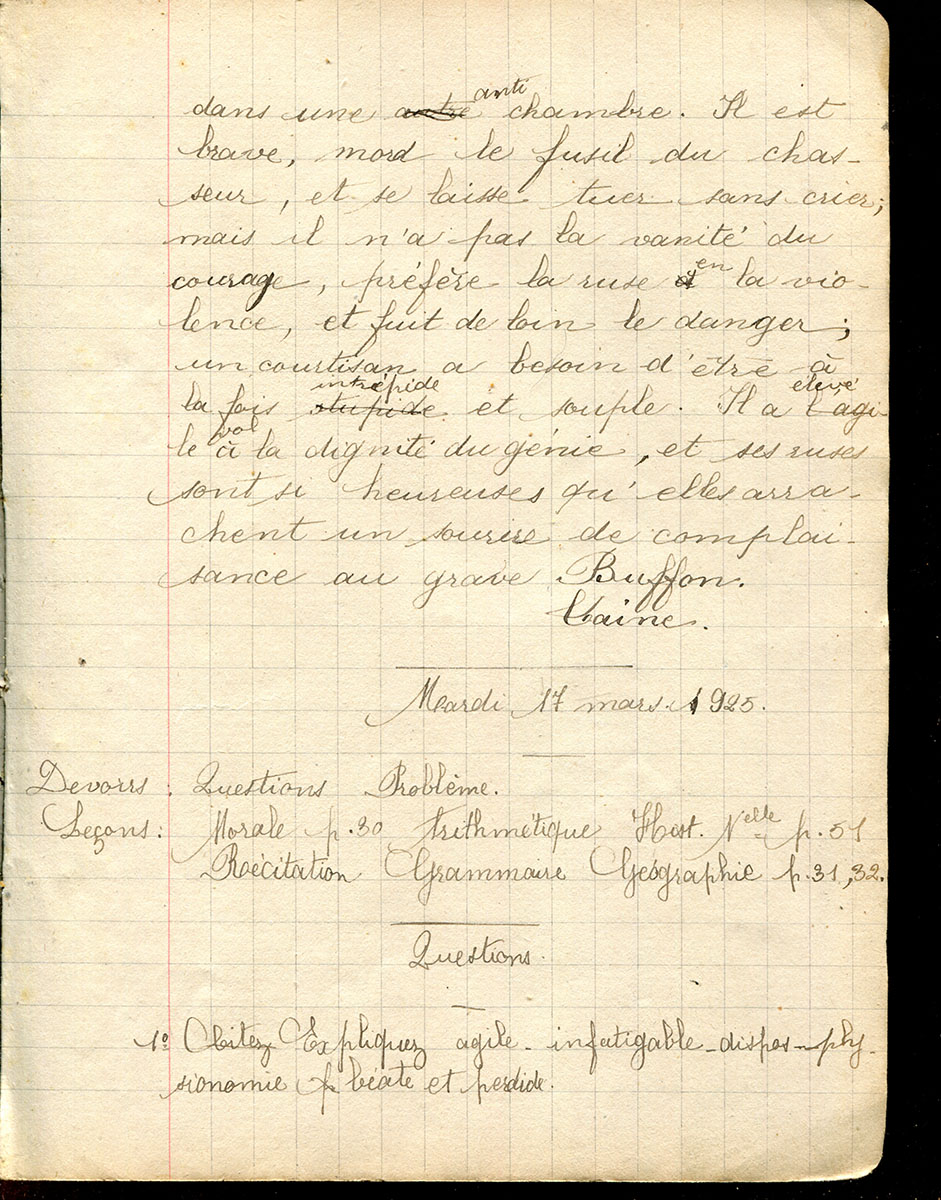 dans une antre anti chambre. Il est
brave, mord le fusil du chas-
seur, et se laisse tuer sans crier;
mais il n'a pas la vanité du
courage, préfère la ruse en la vio-
lence, et fuit de loin le danger;
un courtisan a besoin d'être à
la fois stupide intrépide et souple. Il a élevé l'agi-
le vol à la dignité du génie, et ses ruses
sont si heureuses qu'elles arra-
chent un sourire de complai-
sance au grave Buffon.
Taine.
Mardi 17 mars 1925.
Devoirs : Questions Problème.
Leçons : Morale p.30 Arithmétique Hist. Nelle p.51
Récitation Grammaire Géographie p.31,32.
Questions.
1º Citez Expliquez agile - infatigable - dispos - phy-
sionomie béate et perdide.